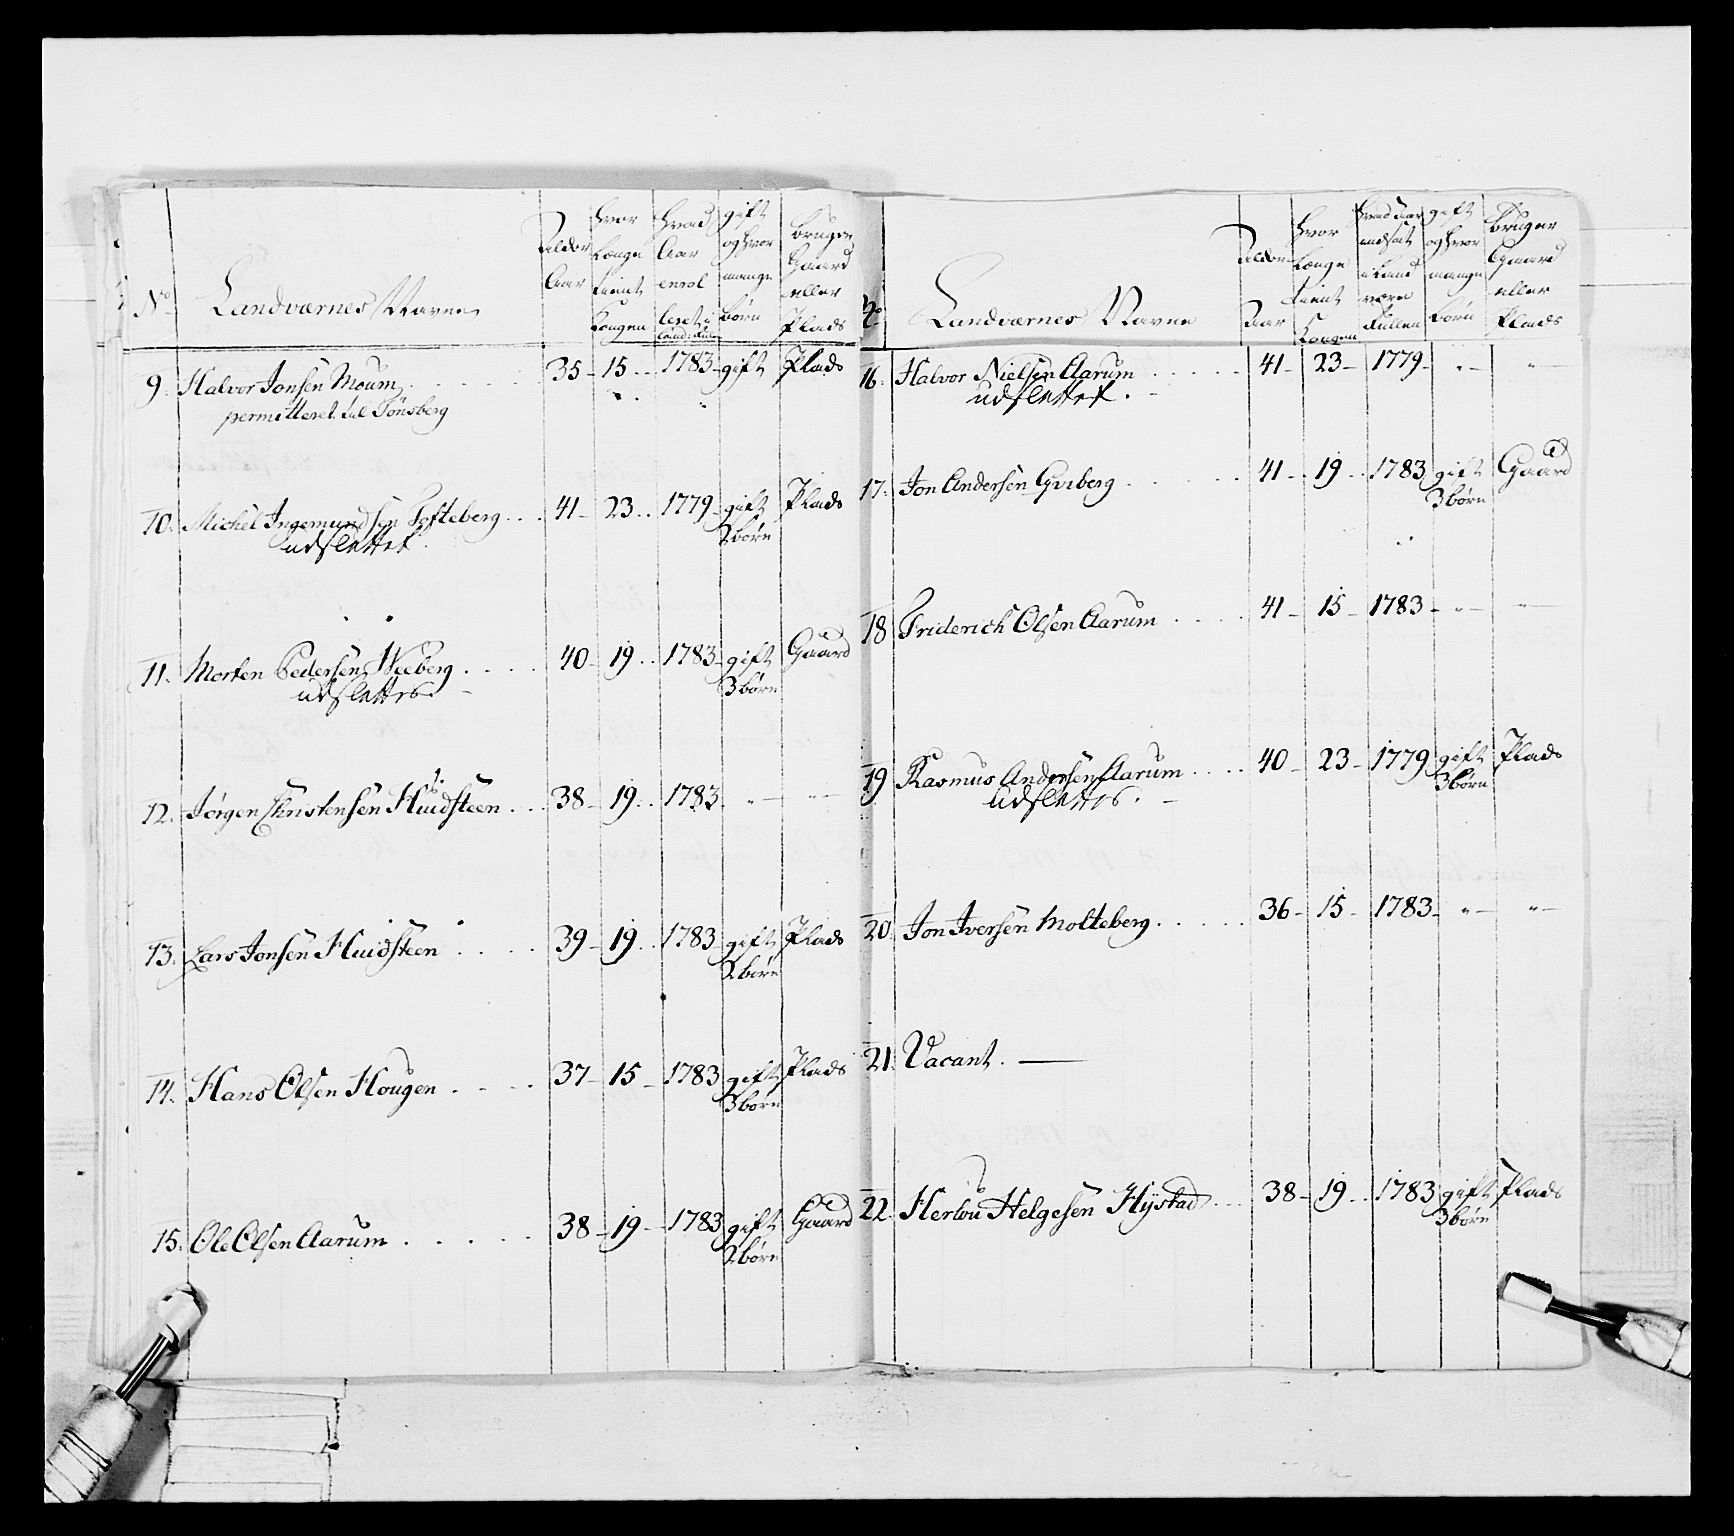 No Landværnes Navne Alder Aar hvor Længe tient Kongen hvad Aar enrolleret i Land: Rul gift og hvor mange Børn bruger Gaard eller Plads
9. Halvor Jonsen Moum 35 15 1783 gift Plads
permitteret til Tönsberg
10. Michel Ingemundsen Tofteberg 41 23 1779 gift Plads
2 börn
udslettet
11. Morten Pedersen Weeberg 40 19 1783 gift Gaard
3 börn
udslettes
12. Jörgen Christensen Huidsteen 38 19 1783 " "
13. Lars Jonsen Huidsteen 39 19 1783 gift Plads
2 börn
14. Hans Olsen Hougen 37 15 1783 gift Plads
3 börn
15. Ole Olsen Aarum 38 19 1783 gift Gaard
2 börn
No Landværnes Navne Alder Aar hvor Længe tient Kongen hvad Aar indsat i Land værn Rullen gift og hvor mange Börn Bruger Gaard eller Plads
16. Halvor Nielsen Aarum 41 23 1779 " "
udslettet.
17. Jon Andersen Gviberg 41 19 1783 gift Gaard
3 börn
18 Friderich Olsen Aarum 41 15 1783 " "
19 Rasmus Andersen Aarum 40 23 1779 gift Plads
3 börn
udslettes.
20. Jon Iversen Molteberg 36 15 1783 " "
21. Vacant.
22. Herlou Helgesen Hÿstad 38 19 1783 gift Plads
3 börn